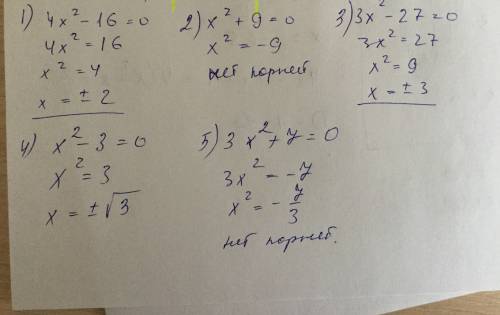 1) 4x² - 16 = 0
4x² = 16
x² = 4
x = ± 2
2) x² + 9 = 0
x² = -9
нет корней.
3) 3x² - 27 = 0
3x² = 27
x² = 9
x = ± 3
4) x² - 3 = 0
x² = 3
x = ±√3
5) 3x² + y = 0
3x² = -y
x² = - y/3
нет корней.